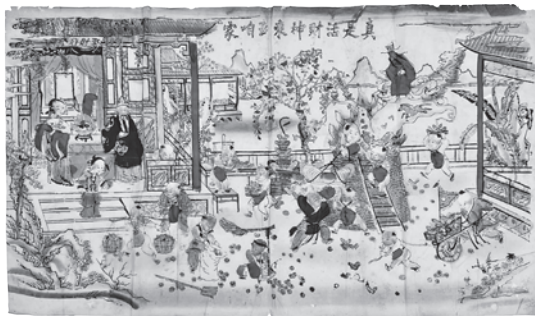 真是活財神來到咱家